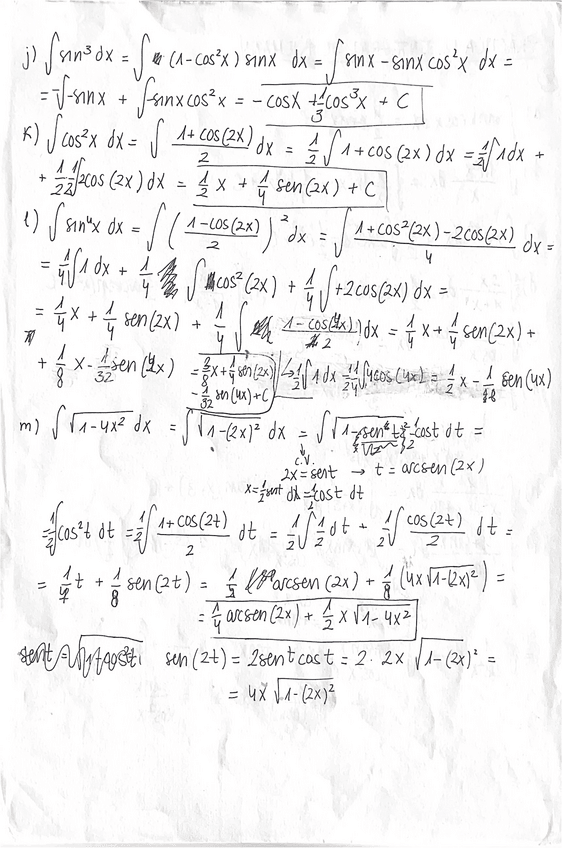 j) ∫ sin³ dx = ∫ (1-cos²x) sinx dx = ∫ sinx - sinx cos²x dx =
= -∫-sinx + ∫-sinxcos²x = -cosx + 1/3 cos³x + C
K) ∫cos²x dx = ∫ (1+cos(2x))/2 dx = 1/2 ∫ 1+cos(2x) dx = 1/2 ∫1dx +
+ 1/2 1/2 ∫2cos(2x) dx = 1/2 x + 1/4 sen(2x) + C
l) ∫ sin⁴x dx = ∫ ( (1-cos(2x))/2 )² dx = ∫ (1+cos²(2x)-2cos(2x))/4 dx =
= 1/4 ∫1 dx + 1/4 ∫ cos²(2x) + 1/4 ∫+2cos(2x) dx =
= 1/4 x + 1/4 sen(2x) + 1/4 ∫ (1-cos(4x))/2 dx = 1/4 x + 1/4 sen(2x) +
+ 1/8 x - 1/32 sen(4x) = 3/8 x + 1/4 sen(2x) - 1/32 sen(4x) + C ↳ 1/2 ∫ 1 dx - 1/2 1/4 ∫4cos(4x) = 1/2 x - 1/8 sen(4x)
m) ∫ √(1-4x²) dx = ∫ √(1-(2x)²) dx = ∫ √(1-sen²t) · 1/2 cost dt =
↓
C.V.
2x = sent → t = arcsen(2x)
x = 1/2 sent dx = 1/2 cost dt
= 1/2 ∫cos²t dt = 1/2 ∫ (1+cos(2t))/2 dt = 1/2 ∫ 1/2 dt + 1/2 ∫ cos(2t)/2 dt =
= 1/4 t + 1/8 sen(2t) = 1/4 arcsen(2x) + 1/8 (4x √(1-(2x)²) =
= 1/4 arcsen(2x) + 1/2 x √(1-4x²)
sen(2t) = 2sent cost = 2 · 2x √(1-(2x)²) =
= 4x √(1-(2x)²)